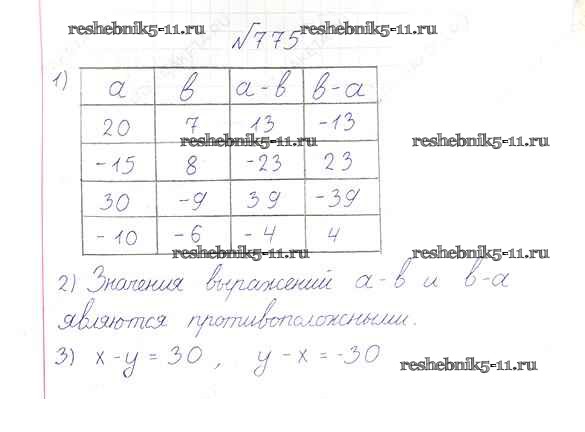 reshebnik5-11.ru reshebnik5-11.ru
№775
1)
a в a-в в-a
20 7 13 -13
reshebnik5-11.ru reshebnik5-11.ru
-15 8 -23 23
30 -9 39 -39
reshebnik5-11.ru reshebnik5-11.ru
-10 -6 -4 4
reshebnik5-11.ru reshebnik5-11.ru
2) Значения выражений a-в и в-a
являются противоположными.
3) x-y=30, y-x=-30
reshebnik5-11.ru